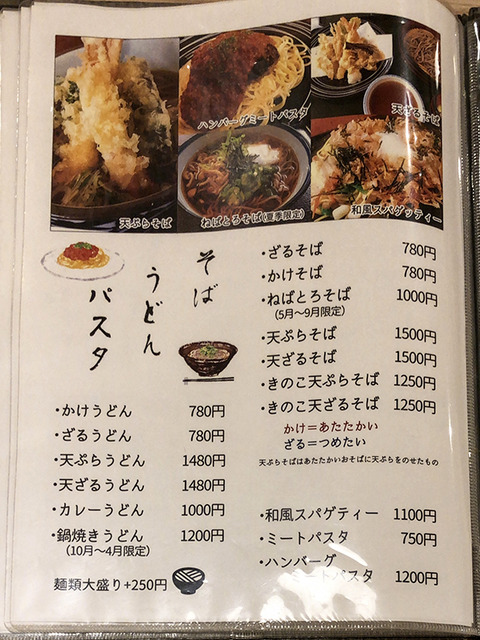 天ぷらそば
ハンバーグミートパスタ
ねばとろそば(夏季限定)
天ざるそば
和風スパゲッティー
そば
うどん
パスタ
・ざるそば 780円
・かけそば 780円
・ねばとろそば 1000円
(5月〜9月限定)
・天ぷらそば 1500円
・天ざるそば 1500円
・きのこ天ぷらそば 1250円
・きのこ天ざるそば 1250円
かけ=あたたかい
ざる=つめたい
天ぷらそばはあたたかいおそばに天ぷらをのせたもの
・かけうどん 780円
・ざるうどん 780円
・天ぷらうどん 1480円
・天ざるうどん 1480円
・カレーうどん 1000円
・鍋焼きうどん 1200円
(10月〜4月限定)
麺類大盛り+250円
・和風スパゲティー 1100円
・ミートパスタ 750円
・ハンバーグ
ミートパスタ 1200円